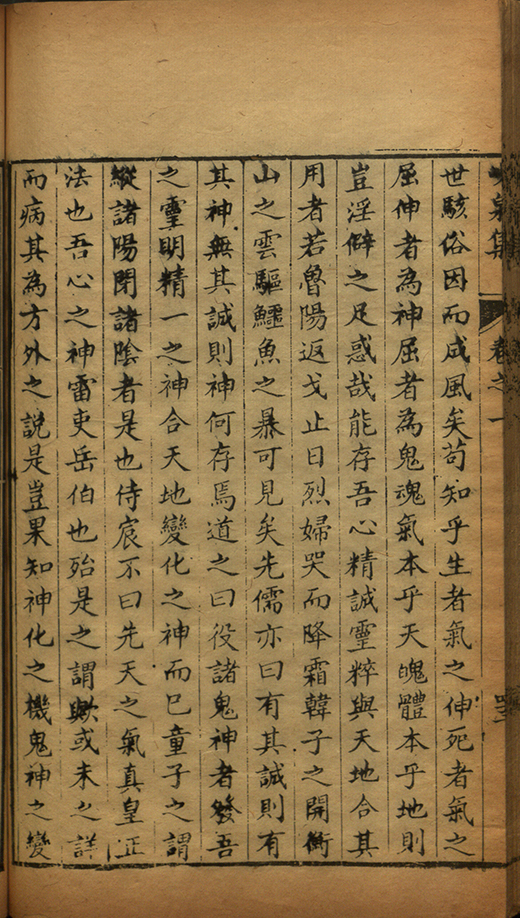 泉集 卷之一
世駭俗因而成風矣苟知乎生者氣之伸死者氣之
屈伸者為神屈者為鬼魂氣本乎天魄體本乎地則
豈淫僻之足惑哉能存吾心精誠靈粹與天地合其
用者若魯陽返戈止日烈婦哭而降霜韓子之開衡
山之雲驅鱷魚之暴可見矣先儒亦曰有其誠則有
其神無其誠則神何存焉道之曰役諸鬼神者發吾
之靈明精一之神合天地變化之神而巳童子之謂
縱諸陽閉諸陰者是也侍宸不曰先天之氣真皇正
法也吾心之神雷吏岳伯也殆是之謂歟或未之詳
而病其為方外之說是豈果知神化之機鬼神之變